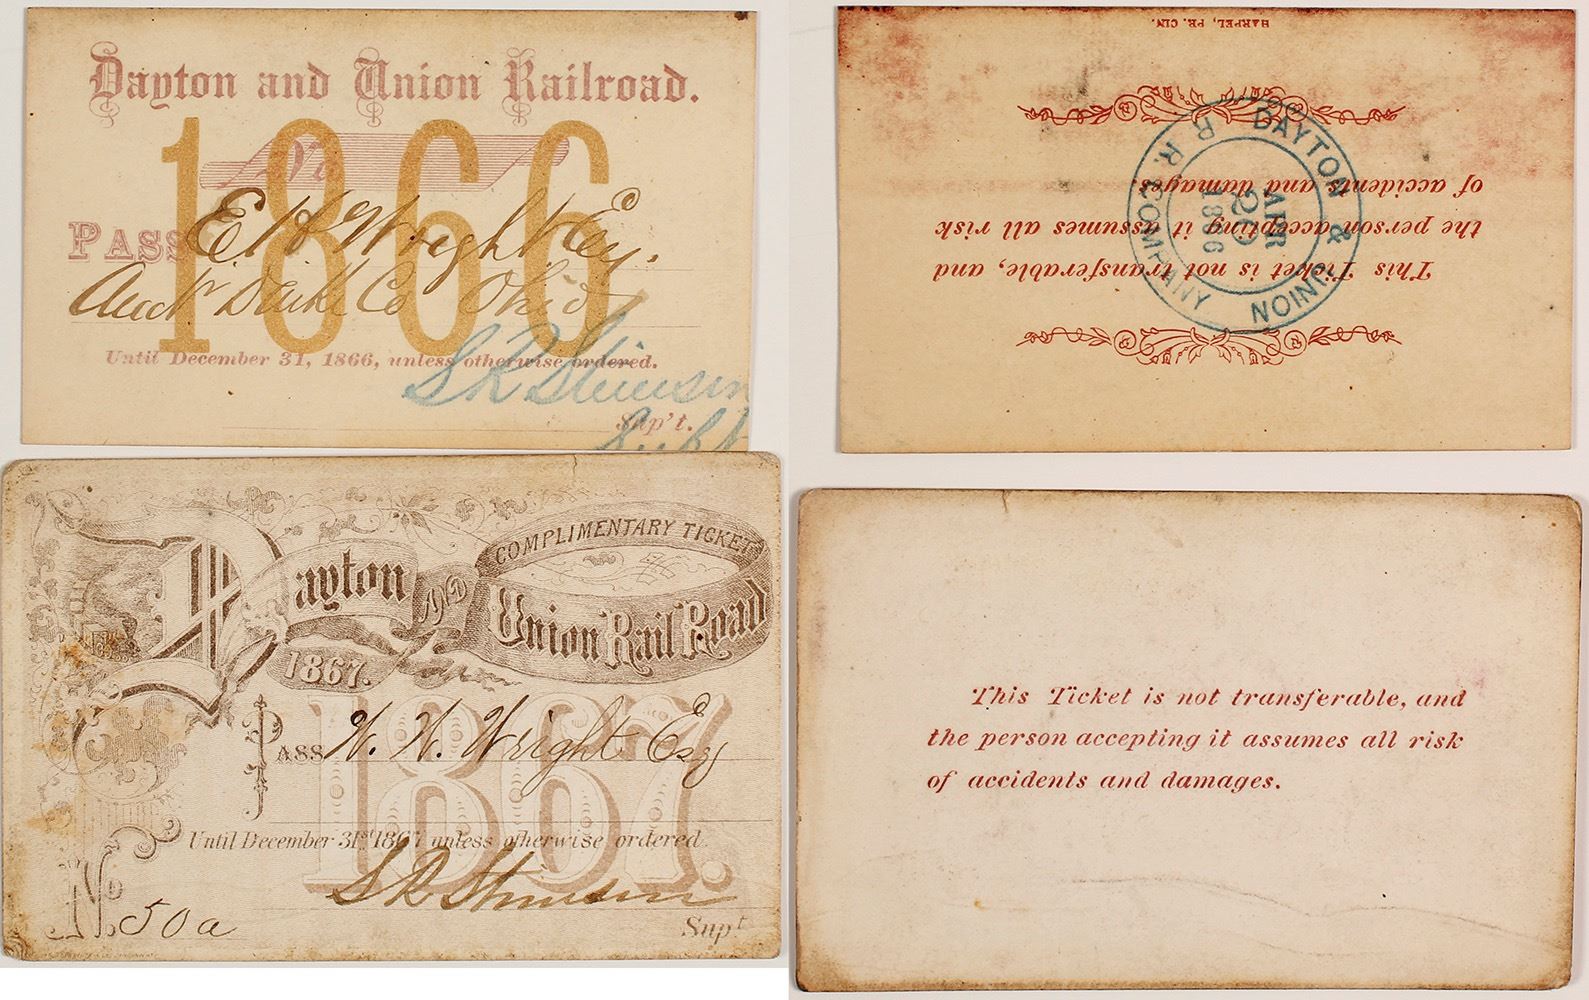 Dayton and Union Railroad.
1866
No
PASS E H Wright Esq.
Aud'r Darke Co Ohio
Until December 31, 1866, unless otherwise ordered.
S R Stimson
Supt
Sup't.
HARPEL, PR. CIN.
This Ticket is not transferable, and
the person accepting it assumes all risk
of accidents and damages.
DAYTON & UNION R. R. COMPANY
APR
20
1866
COMPLIMENTARY TICKET
Dayton AND Union Rail Road
1867.
1867.
PASS W. W. Wright Esq
Until December 31st 1867 unless otherwise ordered.
S R Stimson
Supt
No. 50a
This Ticket is not transferable, and
the person accepting it assumes all risk
of accidents and damages.